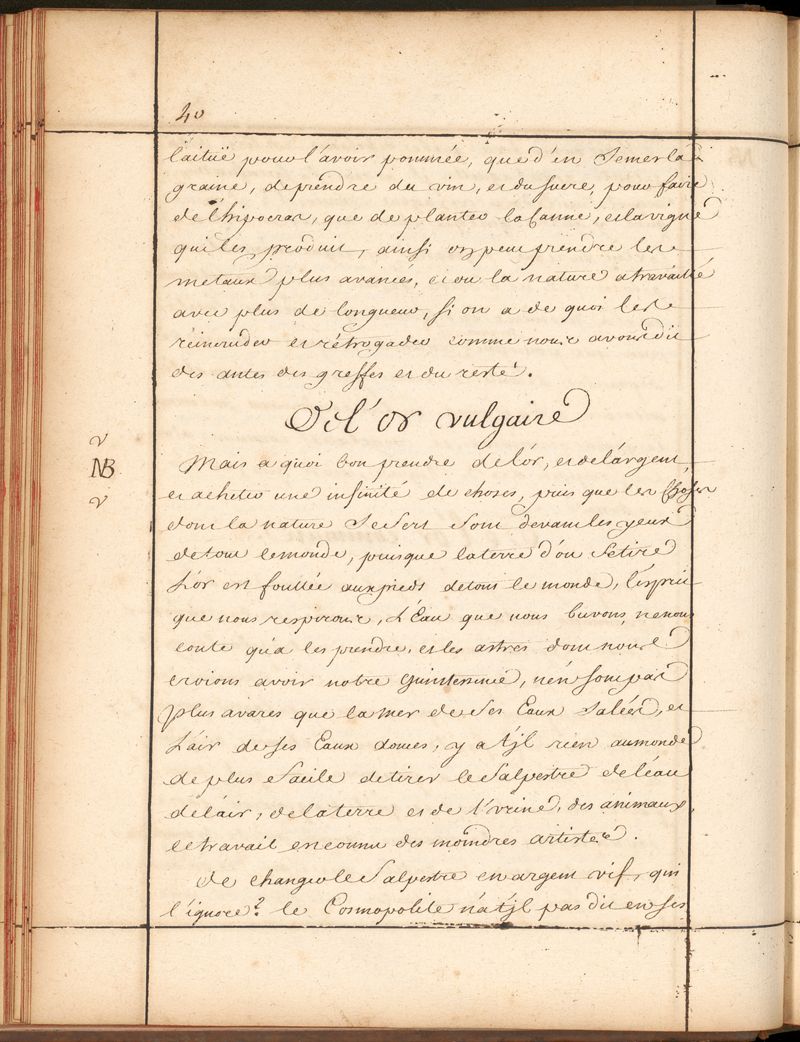 40
laituë pour l'avoir pommée, que d'en semer la
graine, de prendre du vin, et du sucre, pour faire
de l'hipocras, que de planter la Canne, et la vigne
qui les produit, ainsi on peut prendre les
metaux plus avancés, et ou la nature a travaillé
avec plus de longueur, si on a de quoi les
réincruder et rétrogader comme nous avons dit
des antes des greffes et du reste.
De l'or vulgaire
NB
Mais a quoi bon prendre de l'or, et de l'argent
et acheter une infinité de choses, puis que les choses
dont la nature se sert sont devant les yeux
de tout le monde, puisque la terre d'ou se tire
L'or est foullée aux pieds de tous le monde, l'esprit
que nous respirons, L'Eau que nous buvons, ne nous
coute qu'a les prendre, et les astres dont nous
croions avoir notre quintessence, n'en sont pas
plus avares que la mer de ses Eaux salées, et
L'air de ses Eaux douces, y a t'jl rien au monde
de plus facile de tirer le salpestre de l'eau
de l'air, de la terre et de l'vrine, des animaux,
le travail en connu des moindres artistes.
De changer le salpestre en argent vif, qui
l'ignore? le Cosmopolite n'a t'jl pas dit en ses